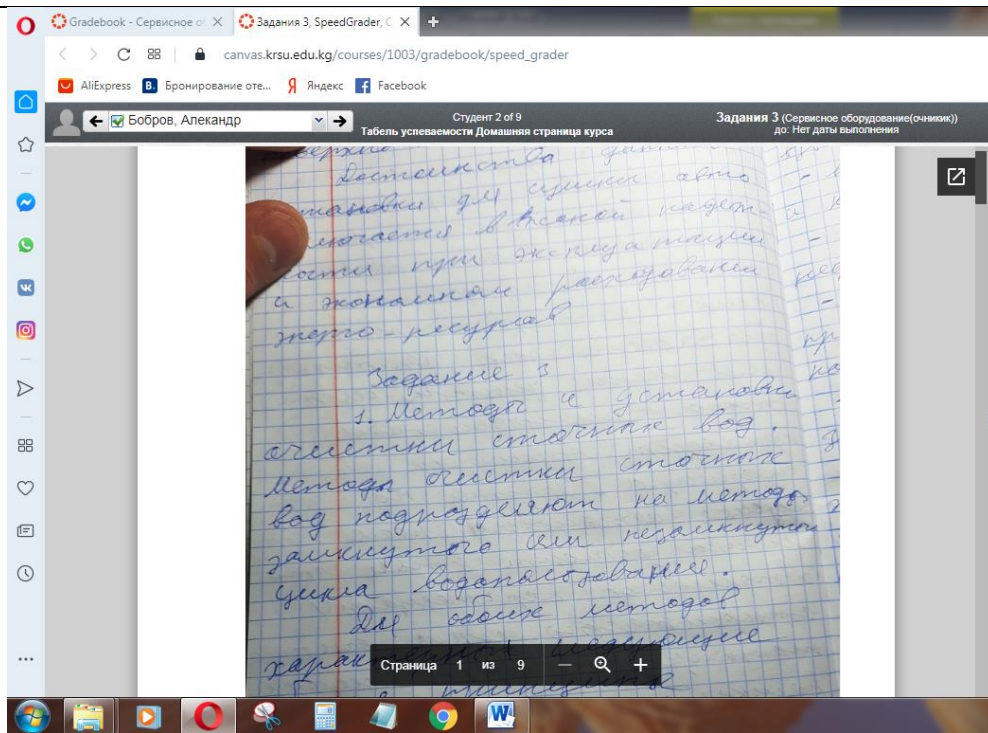 Gradebook - Сервисное о
Задания 3, SpeedGrader, С
canvas.krsu.edu.kg/courses/1003/gradebook/speed_grader
AliExpress
B. Бронирование оте...
Я Яндекс
Facebook
Бобров, Алекандр
Студент 2 of 9
Табель успеваемости Домашняя страница курса
Задания 3 (Сервисное оборудование(очникик))
до: Нет даты выполнения
Достоинства
для сушки авто
в
при эксплуатации
и
энерго-ресурсав
Задание 3
1. Методы и установки
очистки сточных вод.
Методы очистки сточных
вод подразделяют на методы
замкнутого или незамкнутого
цикла водопользования.
Для обоих методов
следующие
принципы
Страница 1 из 9